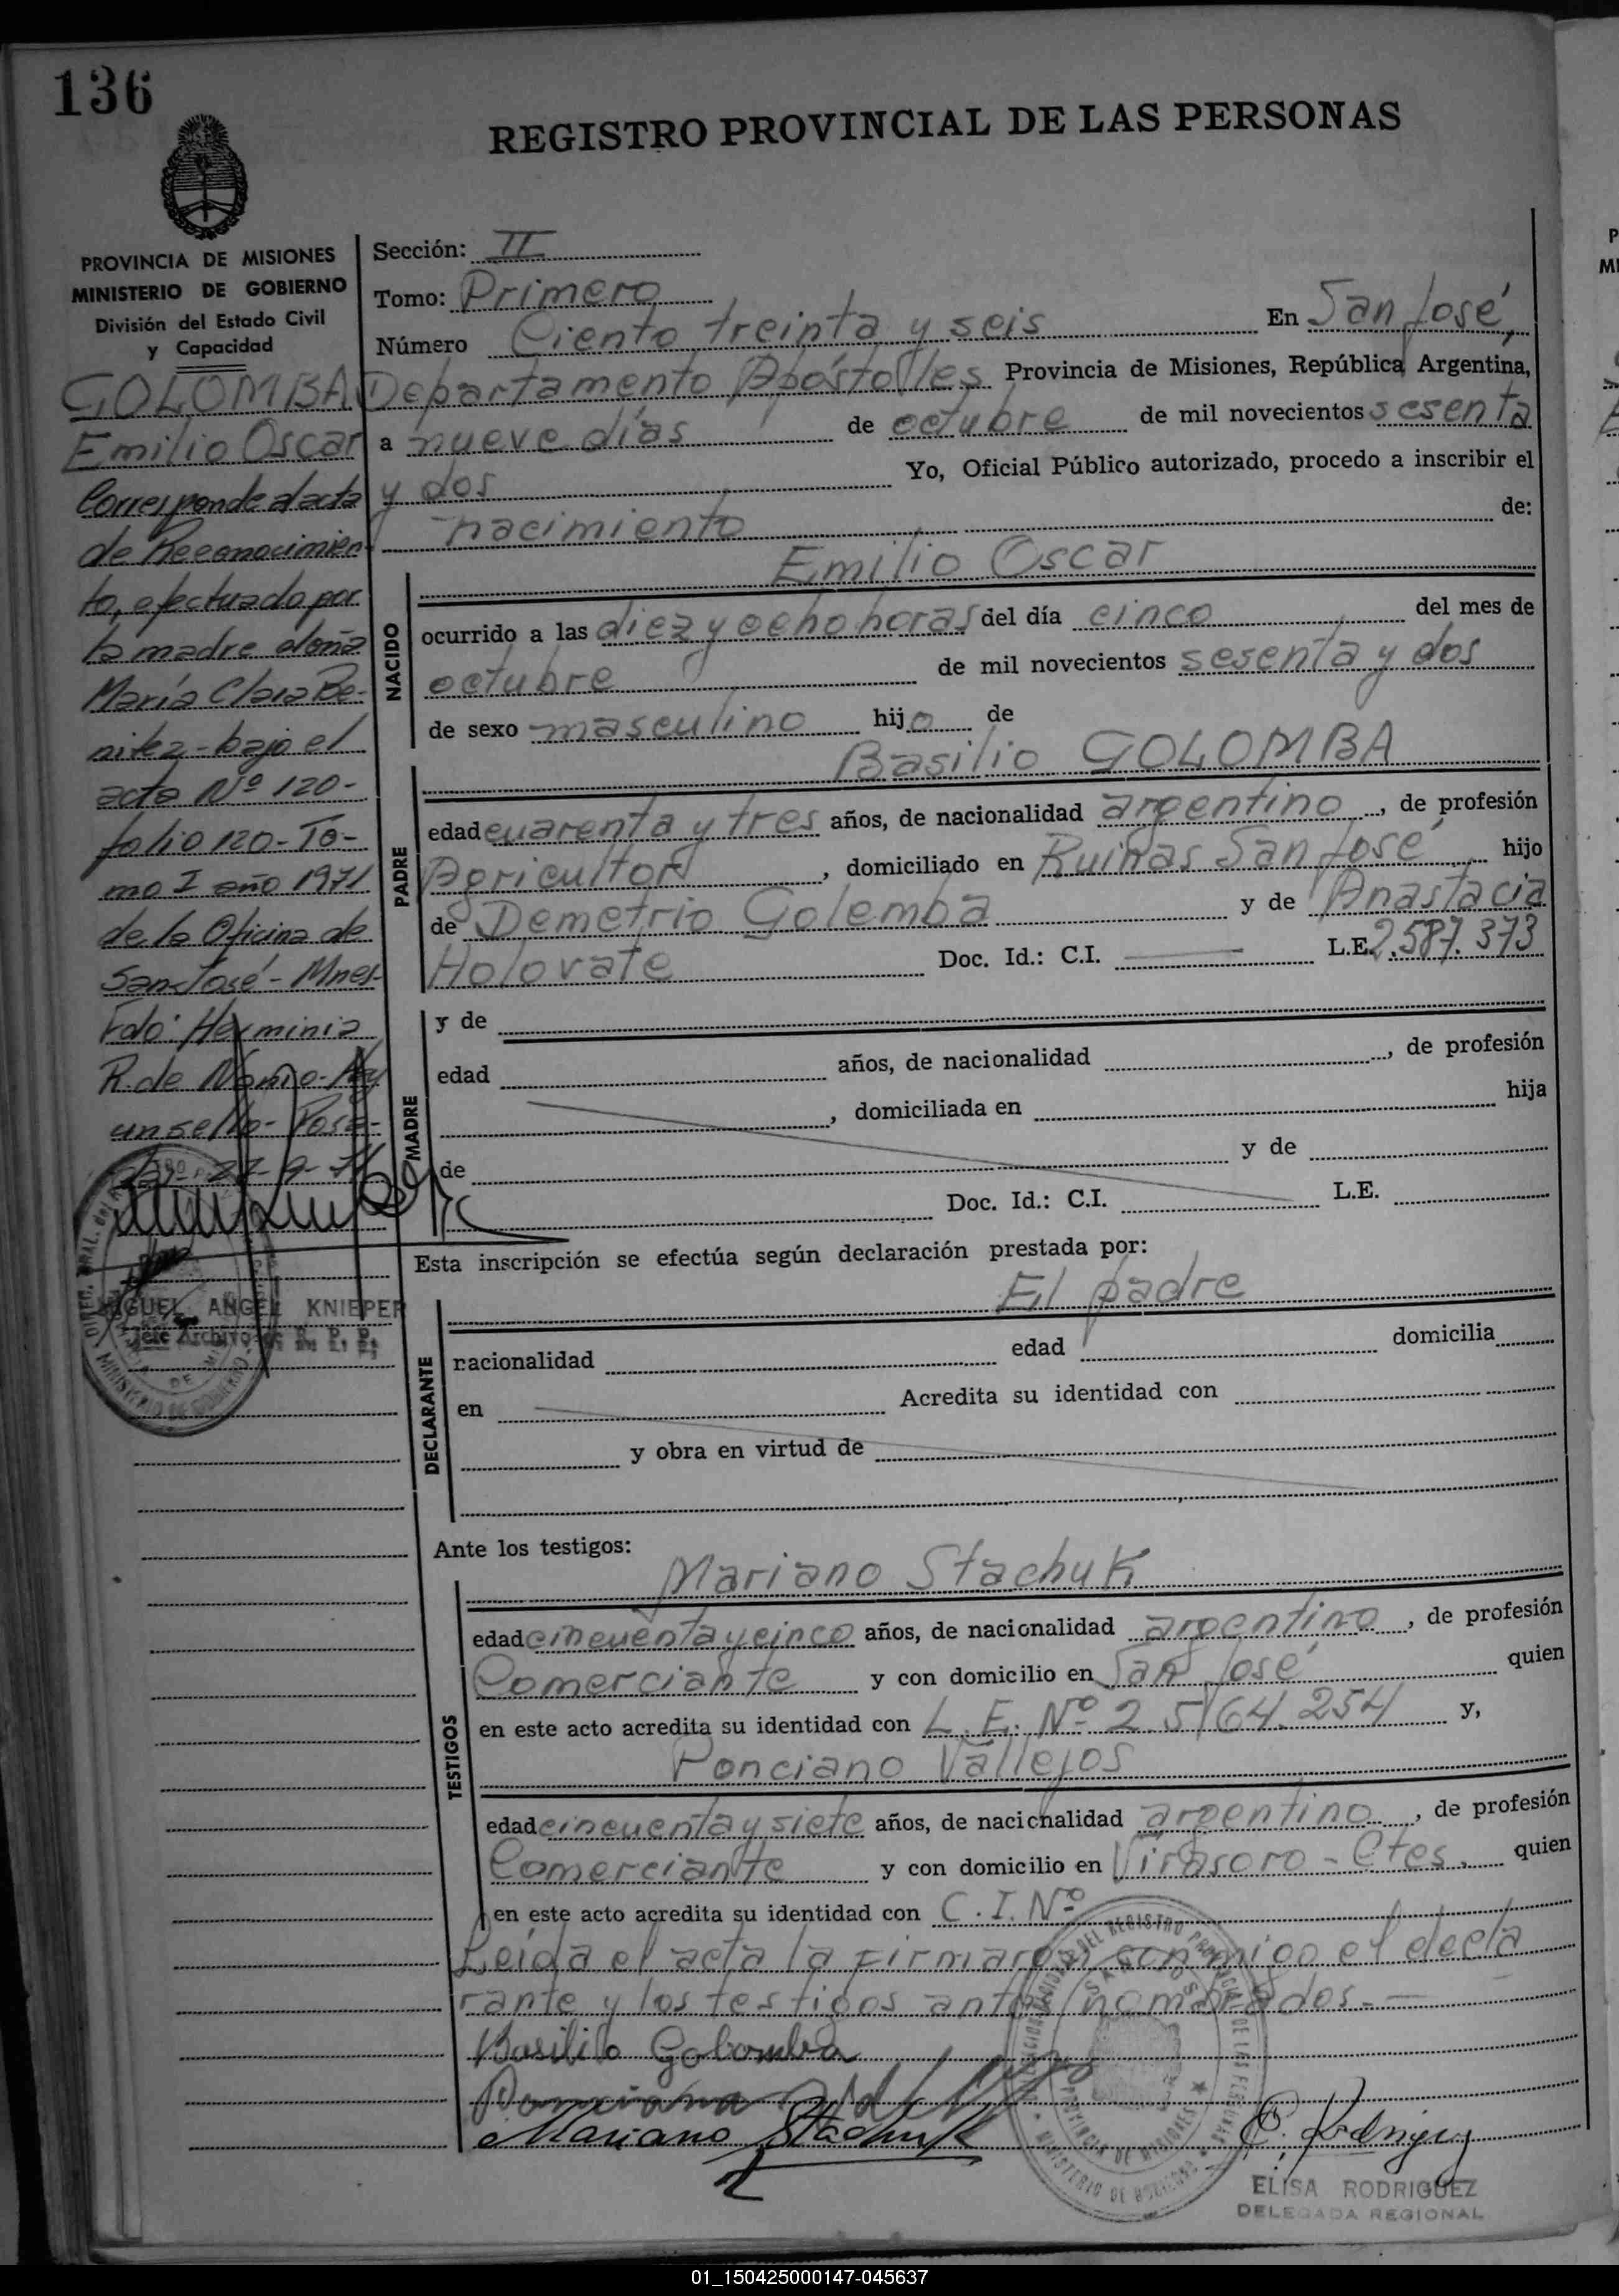 136
REGISTRO PROVINCIAL DE LAS PERSONAS
PROVINCIA DE MISIONES
MINISTERIO DE GOBIERNO
División del Estado Civil
y Capacidad
GOLOMBA
Emilio Oscar
Corresponde al acta
de Reconocimien-
to, efectuado por
la madre doña
María Clara Be-
nitez - bajo el
acta Nº 120-
folio 120 - To-
mo I año 1971
de la Oficina de
San José - Mnes-
Fdo: Herminia
R. de - Hay
un sello - Posa-
das, 27-9-71
MIGUEL ANGEL KNIEPER
Jefe Archivo R. P. P.
Sección: II
Tomo: Primero
Número Ciento treinta y seis En San José,
Departamento Apóstoles Provincia de Misiones, República Argentina,
a nueve días de octubre de mil novecientos sesenta
y dos Yo, Oficial Público autorizado, procedo a inscribir el
nacimiento de:
Emilio Oscar
NACIDO
ocurrido a las diez y ocho horas del día cinco del mes de
octubre de mil novecientos sesenta y dos
de sexo masculino hijo de
Basilio GOLOMBA
PADRE
edad cuarenta y tres años, de nacionalidad argentino, de profesión
Agricultor, domiciliado en Ruinas San José hijo
de Demetrio Golemba y de Anastacia
Holovate Doc. Id.: C.I. L.E. 2.587.373
MADRE
y de
edad años, de nacionalidad , de profesión
, domiciliada en hija
de y de
Doc. Id.: C.I. L.E.
Esta inscripción se efectúa según declaración prestada por:
El padre
DECLARANTE
racionalidad edad domicilia
en Acredita su identidad con
y obra en virtud de
Ante los testigos:
Mariano Stachuk
TESTIGOS
edad cincuenta y cinco años, de nacionalidad argentino, de profesión
Comerciante y con domicilio en San José quien
en este acto acredita su identidad con L.E. Nº 2.564.254 y,
Ponciano Vallejos
edad cincuenta y siete años, de nacionalidad argentino, de profesión
Comerciante y con domicilio en Virasoro - Ctes. quien
en este acto acredita su identidad con C.I. Nº
Leída el acta la firmaron conmigo el decla
rante y los testigos antes nombrados.-
Basilio Golomba
Mariano Stachuk
E. Rodriguez
ELISA RODRIGUEZ
DELEGADA REGIONAL
01_150425000147-045637